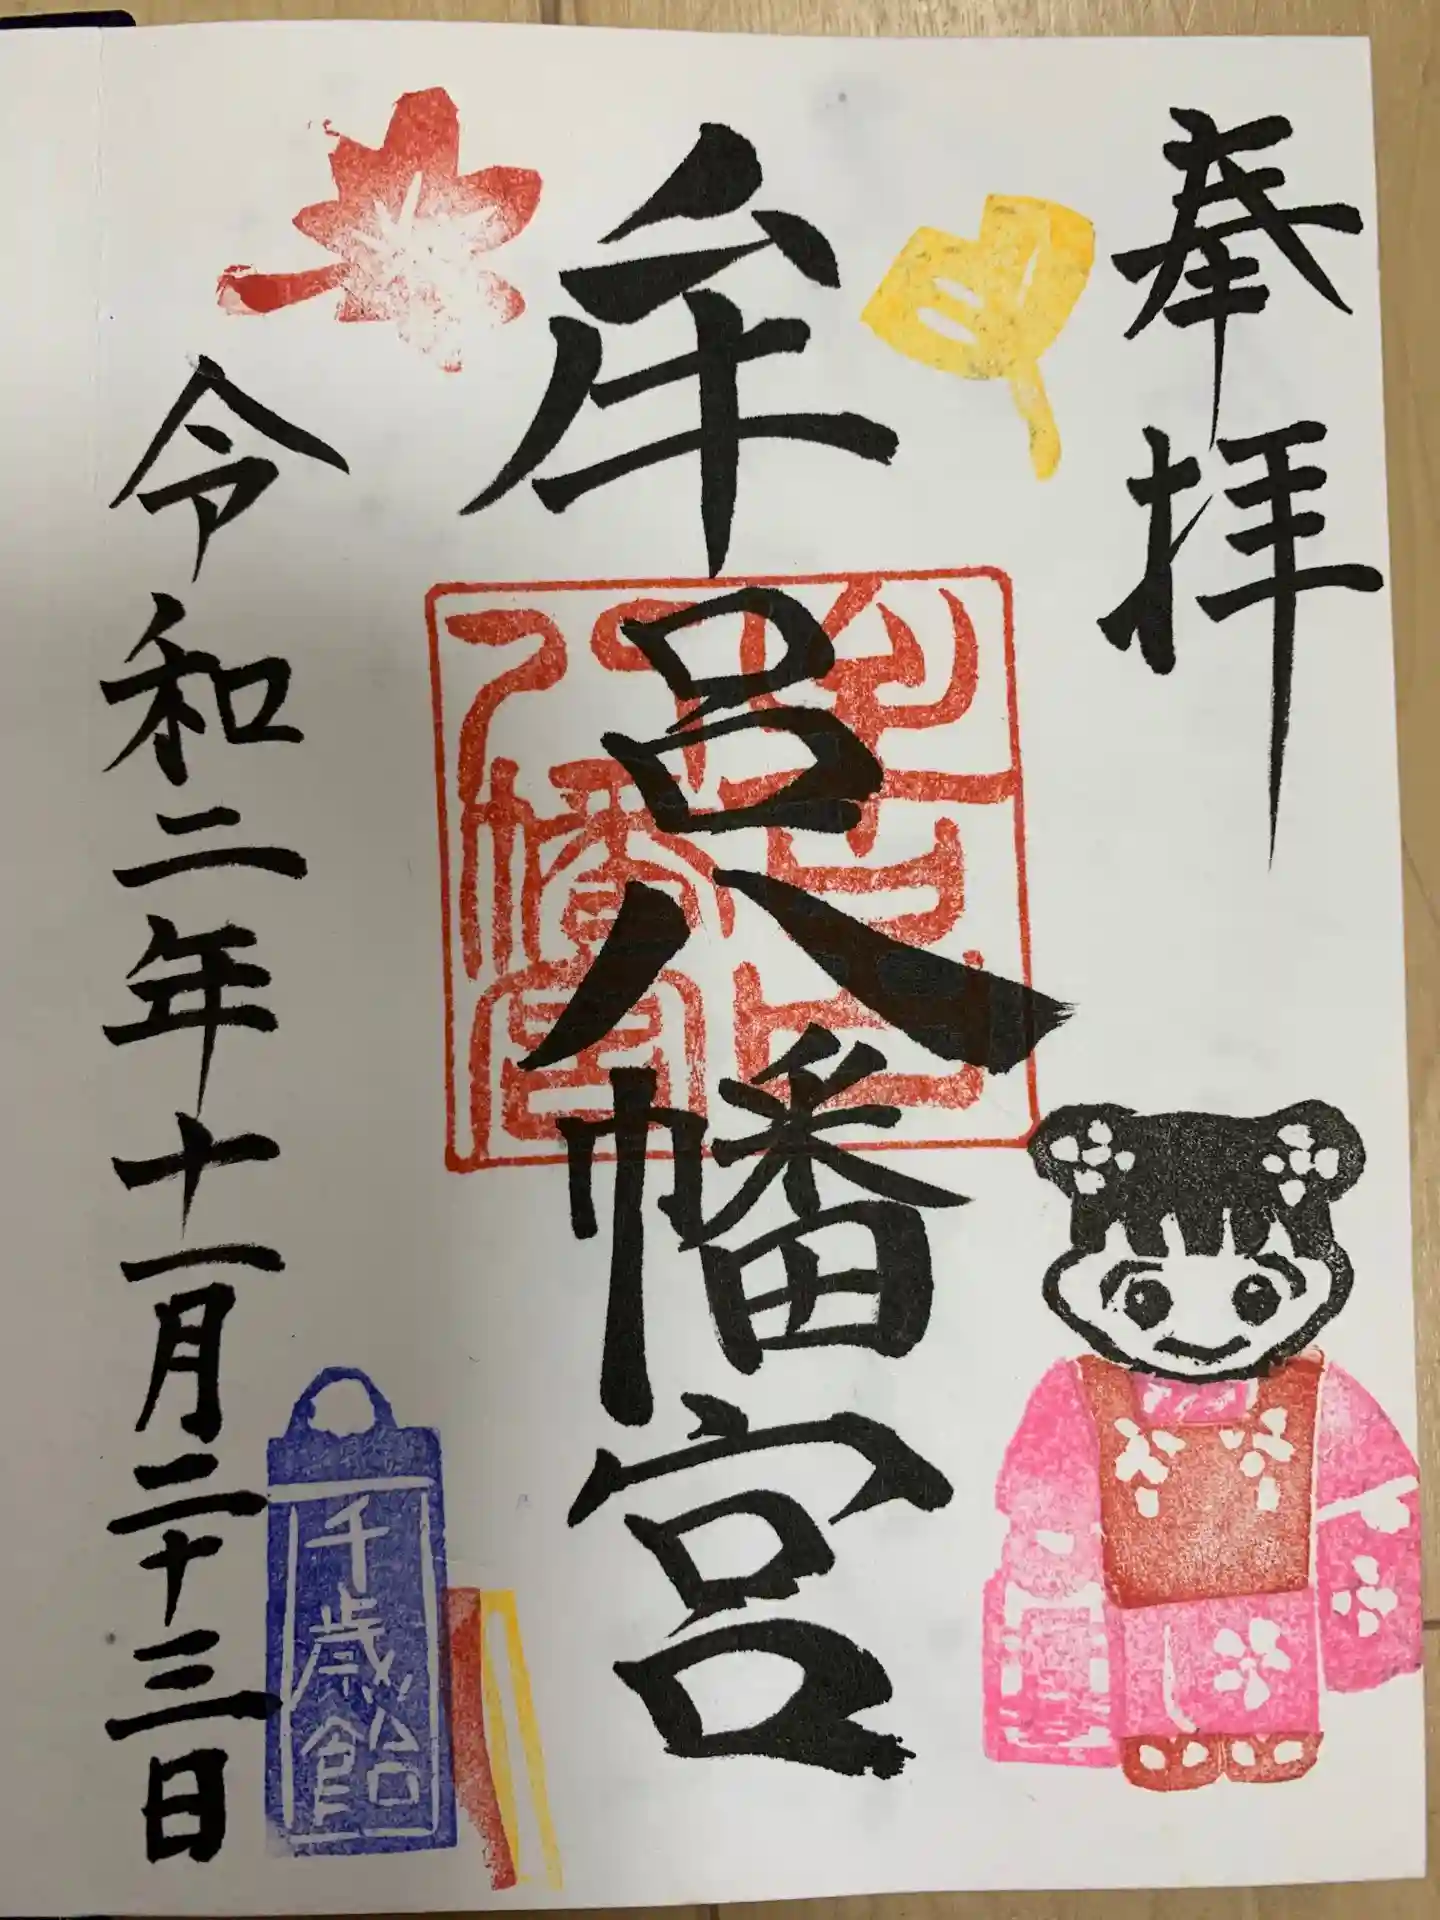 奉拝
牟呂八幡宮
牟呂八幡宮
令和二年十一月二十三日
千歳飴